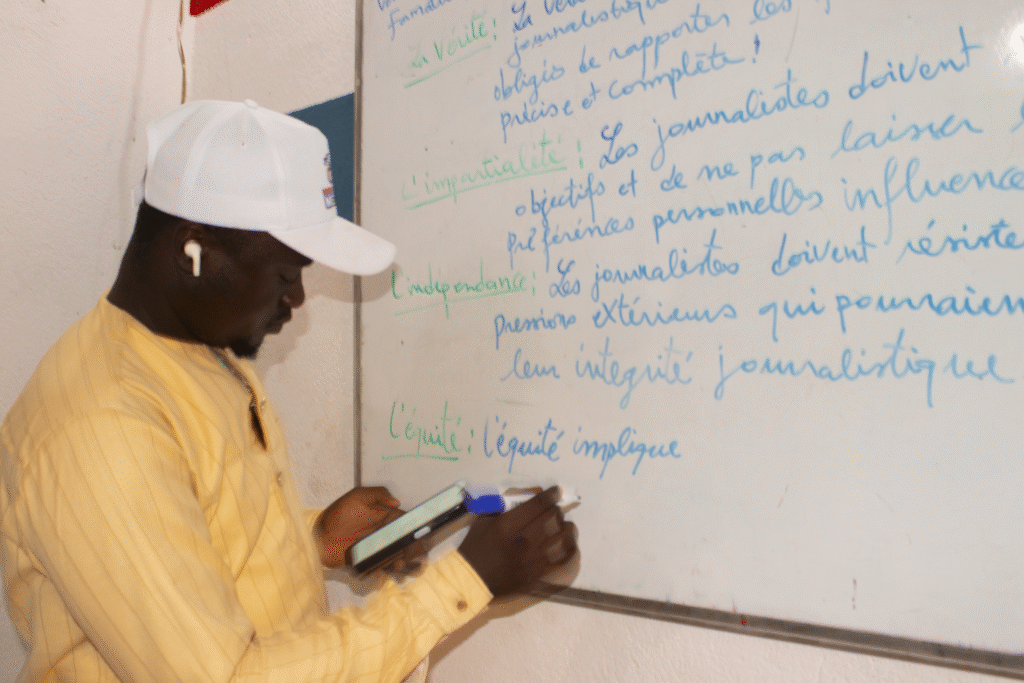 Formation
La vérité : La vérité
journalistique
obligés de rapporter les
précise et complète !
L'impartialité : Les journalistes doivent
objectifs et de ne pas laisser
préférences personnelles influence
L'indépendance : Les journalistes doivent résiste
pressions extérieurs qui pourraien
leur intégrité journalistique
L'équité : l'équité implique